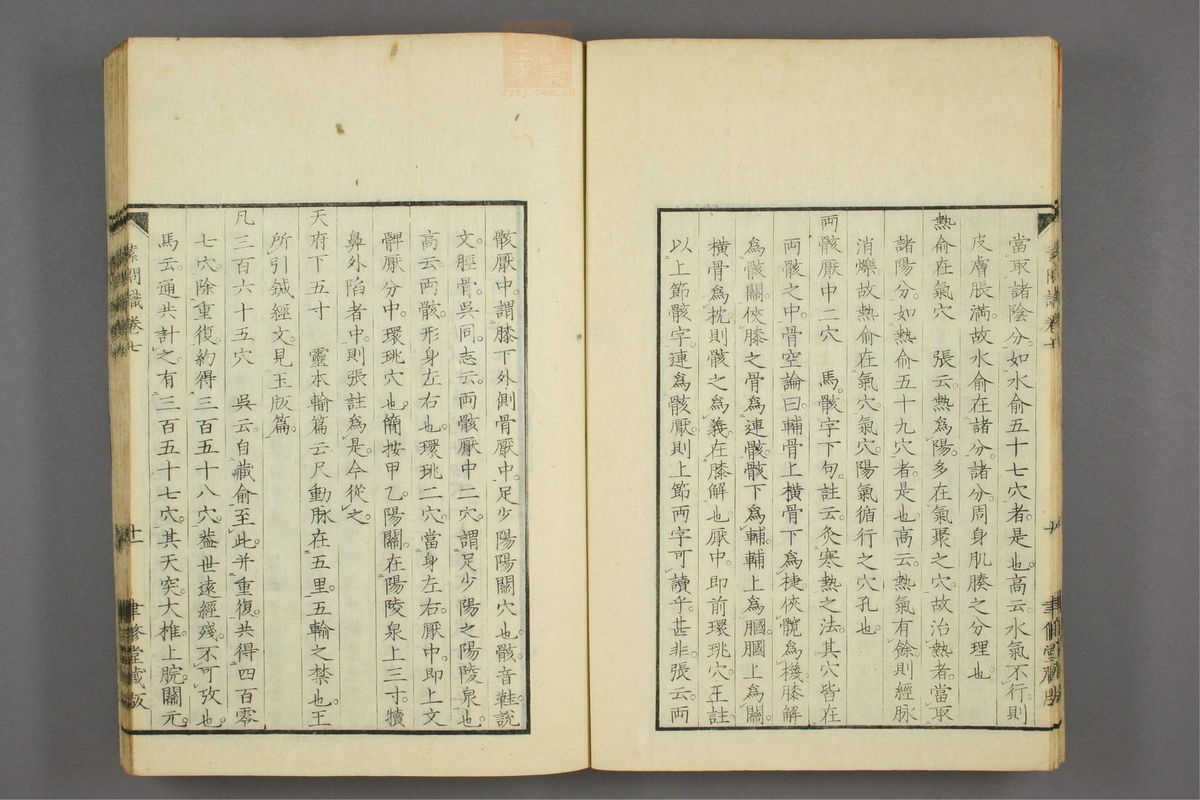 當取諸陰分。如水俞五十七穴者。是也。高云。水氣不行。則
皮膚脹滿。故水俞在諸分。諸分。周身肌腠之分理也
熱俞在氣穴 張云。熱爲陽。多在氣聚之穴。故治熱者。當取
諸陽分。如熱俞五十九穴者。是也。高云。熱氣有餘。則經脉
消爍。故熱俞在氣穴。氣穴。陽氣循行之穴孔也
兩骸厭中二穴 馬。骸字下句。註云。灸寒熱之法。其穴皆在
兩骸之中。骨空論曰。輔骨上橫骨下爲楗。俠髖爲機。膝解
爲骸關。俠膝之骨爲連骸。骸下爲輔。輔上爲膕。膕上爲關。
橫骨爲枕。則骸之爲義。在膝解也。厭中。即前環珧穴。王註
以上節骸字。連爲骸厭。則上節兩字可讀乎。甚非。張云。兩
骸厭中。謂膝下外側骨厭中。足少陽陽關穴也。骸音鞋。說
文。脛骨。吳同。志云。兩骸厭中二穴。謂足少陽之陽陵泉也。
高云。兩骸。形身左右也。環珧二穴。當身左右。厭中。即上文
髀厭分中。環珧穴也。簡按甲乙。陽關。在陽陵泉上三寸。犢
鼻外陷者中。則張註爲是。今從之。
天府下五寸 靈本輸篇云。尺動脉。在五里。五輸之禁也。王
所引鍼經文。見玉版篇。
凡三百六十五穴 吳云。自藏俞至此。并重復。共得四百零
七穴。除重復。約得三百五十八穴。蓋世遠經殘。不可攷也。
馬云。通共計之。有三百五十七穴。其天突。大椎。上脘。關元。
素問識卷七
廿一
聿修堂藏版